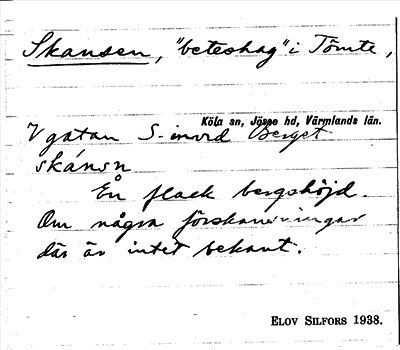 Skansen, "beteshag" i Tömte,
Köla sn, Jösse hd, Värmlands län.
V gatan S. invid Berget
skánsn
En flack bergshöjd.
Om några förskansningar
där är intet bekant.
ELOV SILFORS 1938.